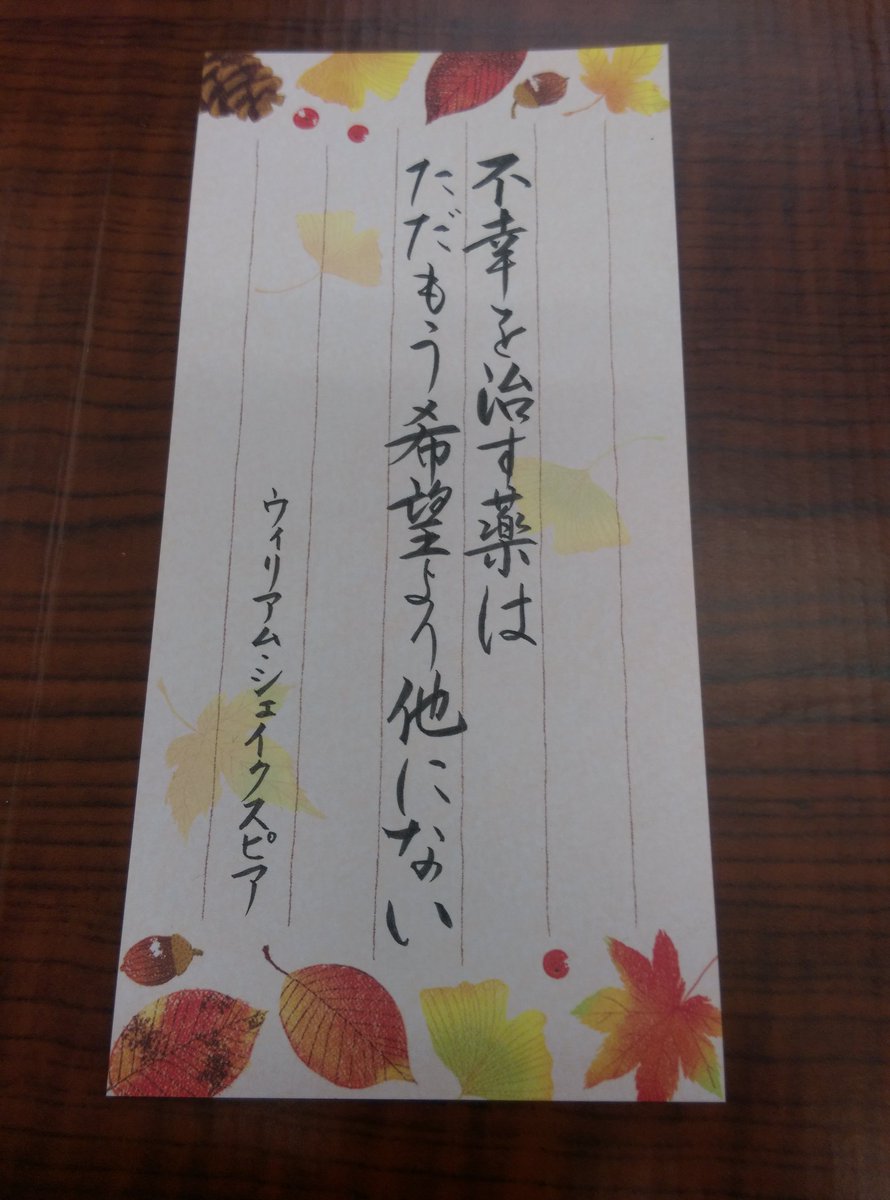 不幸を治す薬は
ただもう希望より他にない
ウィリアム・シェイクスピア